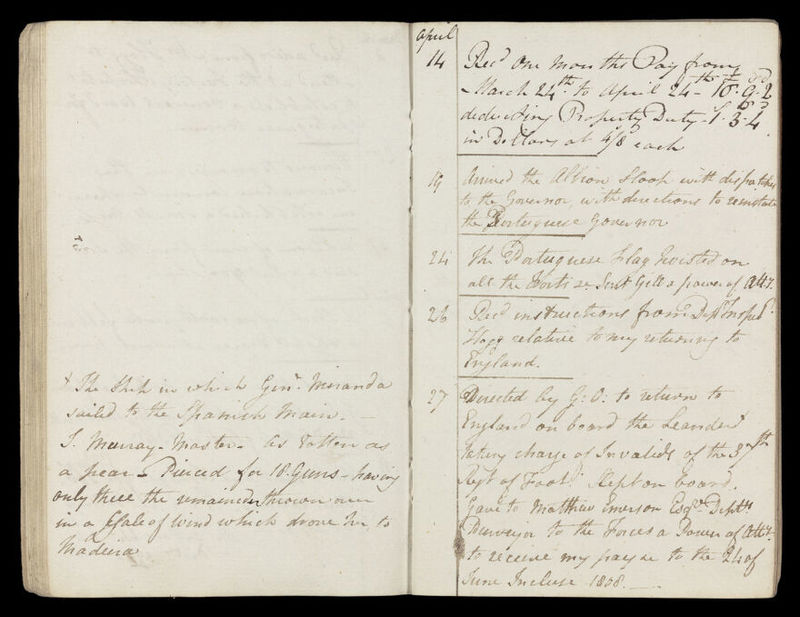 + The Ship in which Genl. Miranda
sailed to the Spanish Main. —
J. Murray - Master - as rotten as
a pear - Pierced for 18 Guns - having
only three the remainder thrown over
in a Gale of Wind which drove her to
Madeira
April
14 Recd One Months Pay from
March 24th to April 24th - 10.9.2
deducting Property Duty - 1.3.4
in Dollars at 4/8 each
19 Arrived the Albion Sloop with dispatches
to the Governor, with directions to reinstate
the Portuguese Governor
24 The Portuguese Flag hoisted on
all the Forts - Sent Gill a power of Atty.
26 Recd instructions from Depy Inspr.
relative to my returning to
England.
27 Directed by G: O: to return to
England on board the Leander +
taking charge of Invalids of the
Regt of Foot. Slept on board.
Gave to Matthew Emerson Esqr. Depty
Purveyor to the Forces a Power of Atty.
to receive my pay &c to the 24 of
June Incluse 1808. —